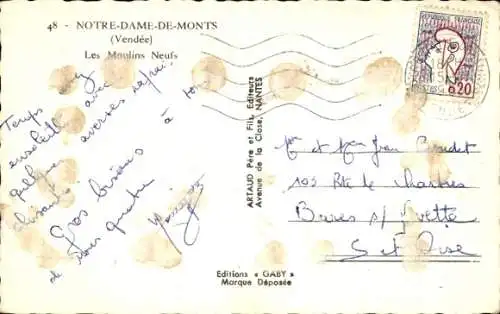 48 - NOTRE-DAME-DE-MONTS
(Vendée)
Les Moulins Neufs
Temps
ensoleillé avec
quelques averses
à
Gros bisous
de nous quatre
ARTAUD Père et Fils, Editeurs
Avenue de la Close, NANTES
Editions « GABY »
Marque Déposée
REPUBLIQUE FRANÇAISE
0,20
et Jean
103 Rte de Chartres
Bures s/ Yvette
S et Oise